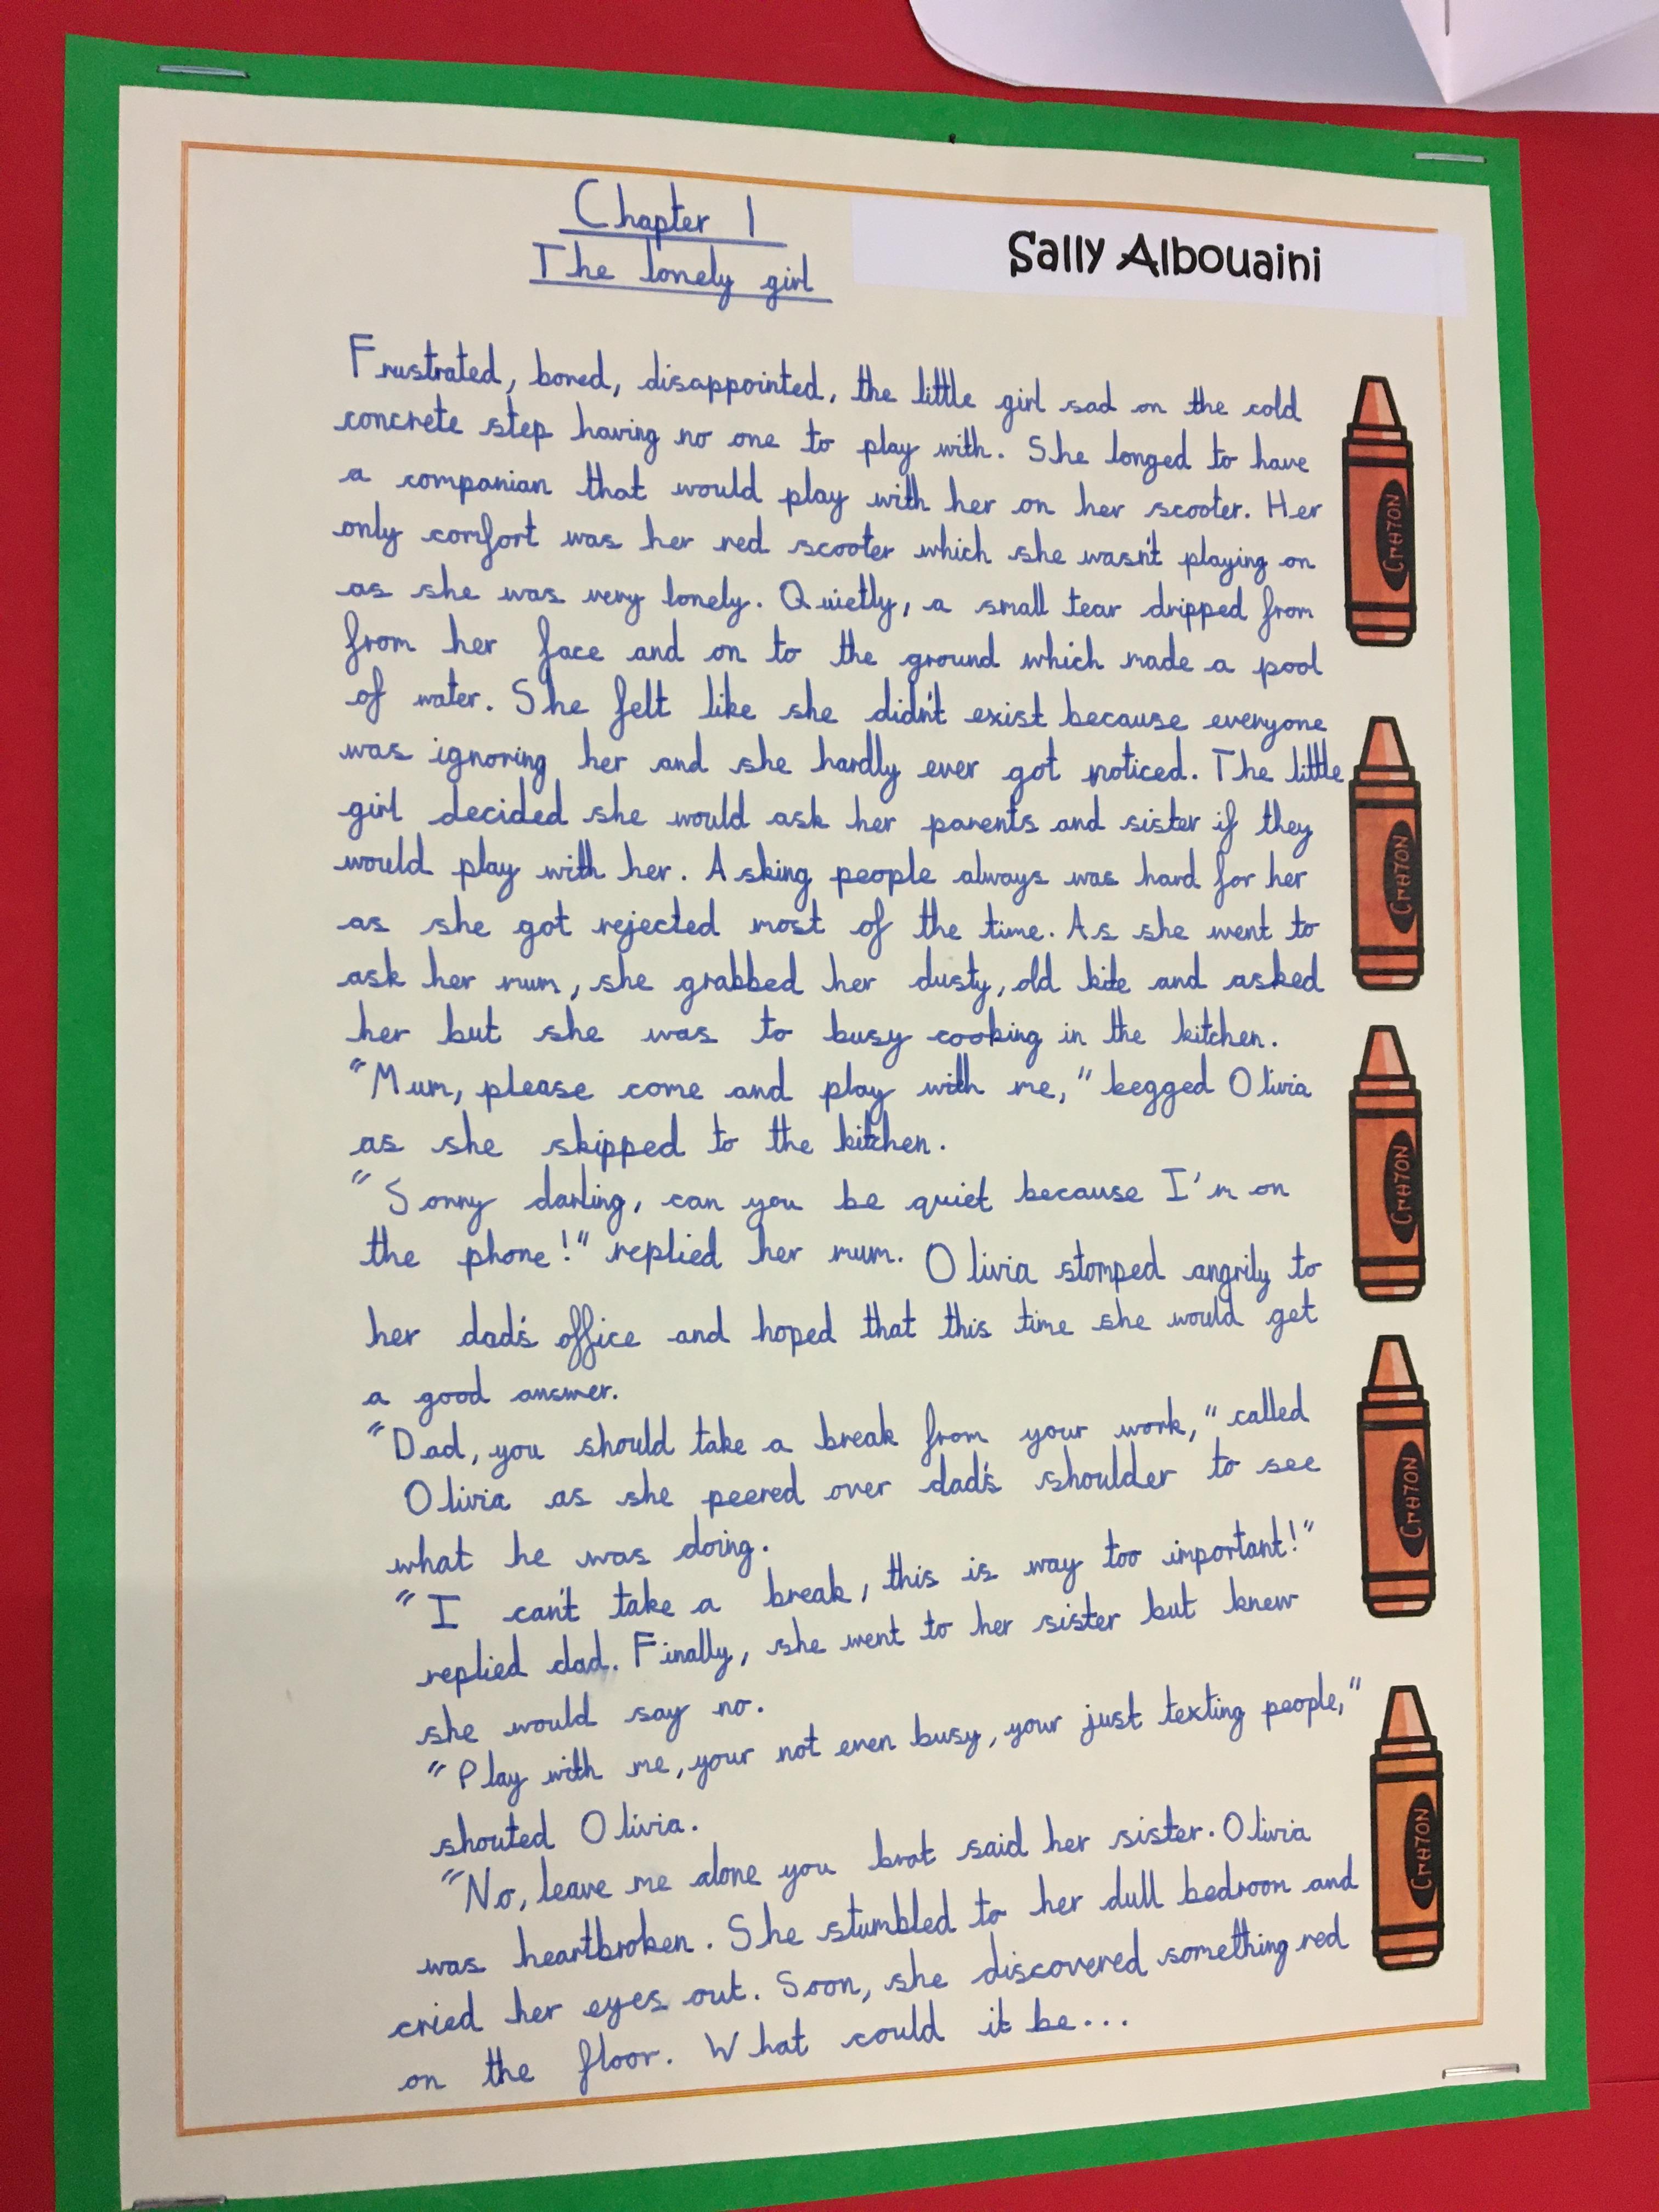 Chapter 1
The lonely girl
Sally Albouaini
Frustrated, bored, disappointed, the little girl sad on the cold
concrete step having no one to play with. She longed to have
a companian that would play with her on her scooter. Her
only comfort was her red scooter which she wasn't playing on
as she was very lonely. Quietly, a small tear dripped from
from her face and on to the ground which made a pool
of water. She felt like she didn't exist because everyone
was ignoring her and she hardly ever got noticed. The little
girl decided she would ask her parents and sister if they
would play with her. Asking people always was hard for her
as she got rejected most of the time. As she went to
ask her mum, she grabbed her dusty, old kite and asked
her but she was to busy cooking in the kitchen.
"Mum, please come and play with me," begged Olivia
as she skipped to the kitchen.
"Sorry darling, can you be quiet because I'm on
the phone!" replied her mum. Olivia stomped angrily to
her dad's office and hoped that this time she would get
a good answer.
"Dad, you should take a break from your work," called
Olivia as she peered over dad's shoulder to see
what he was doing.
"I can't take a break, this is way too important!"
replied dad. Finally, she went to her sister but knew
she would say no.
"Play with me, your not even busy, your just texting people,"
shouted Olivia.
"No, leave me alone you brat said her sister. Olivia
was heartbroken. She stumbled to her dull bedroom and
cried her eyes out. Soon, she discovered something red
on the floor. What could it be...
CrAYON
CrAYON
CrAYON
CrAYON
CrAYON